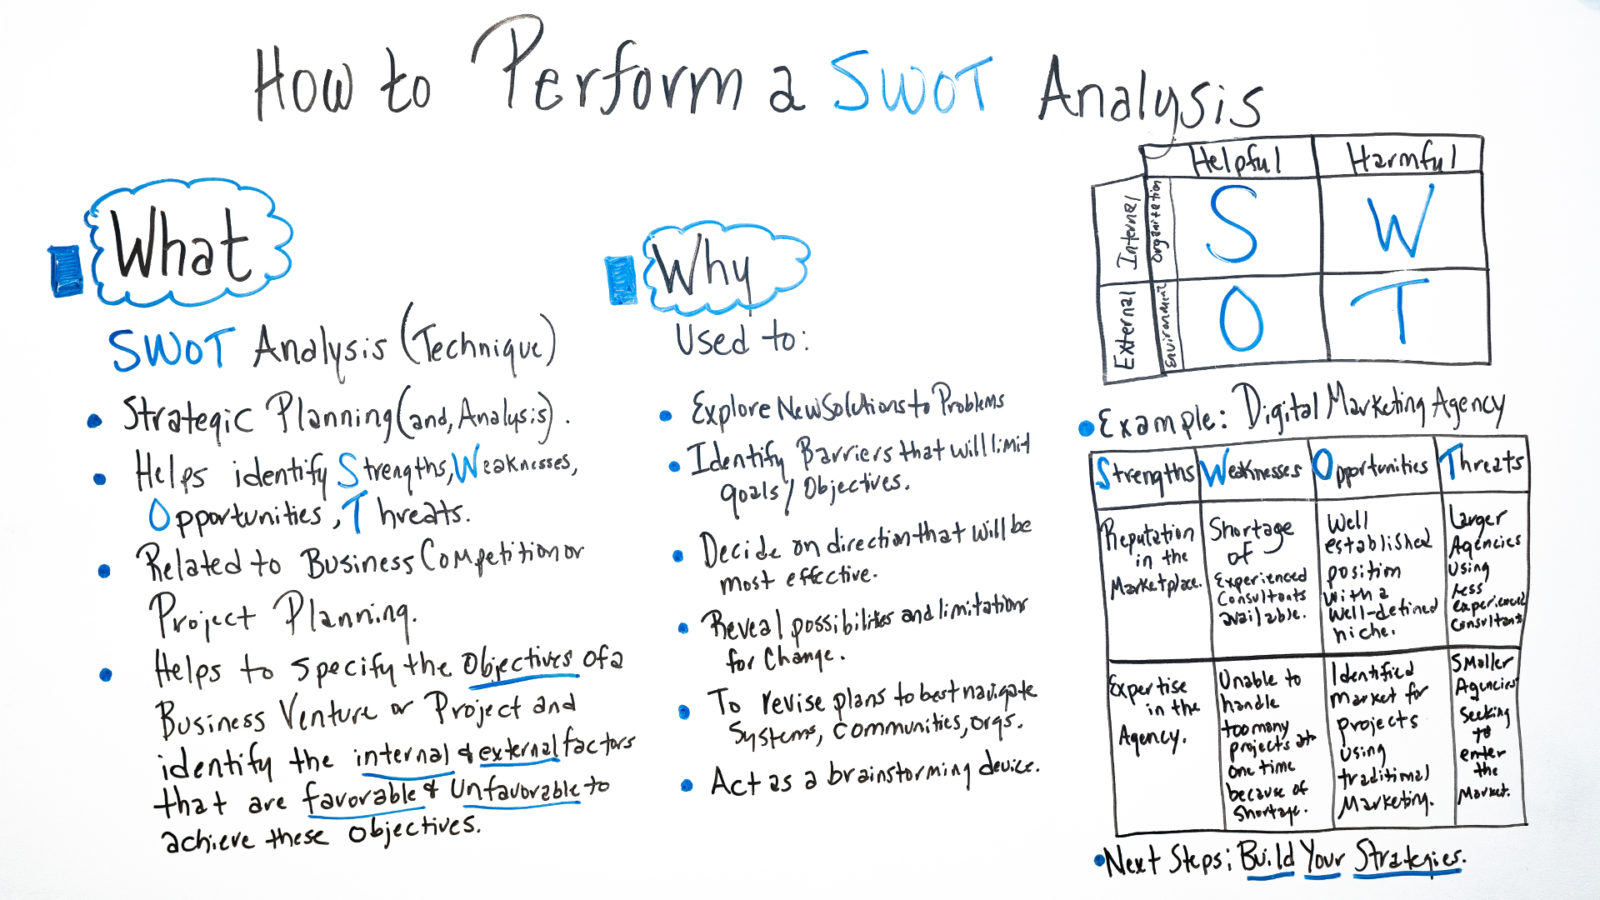 How to Perform a SWOT Analysis
What
SWOT Analysis (Technique)
• Strategic Planning (and, Analysis).
• Helps identify Strengths, Weaknesses,
Opportunities, Threats.
• Related to Business Competition or
Project Planning.
• Helps to specify the Objectives of a
Business Venture or Project and
identify the internal & external factors
that are favorable & Unfavorable to
achieve these Objectives.
Why
Used to:
• Explore New Solutions to Problems
• Identify Barriers that will limit
goals/Objectives.
• Decide on direction that will be
most effective.
• Reveal possibilities and limitations
for Change.
• To revise plans to best navigate
Systems, Communities, orgs.
• Act as a brainstorming device.
Helpful Harmful
Internal
Organization
S W
External
Environment
O T
• Example: Digital Marketing Agency
Strengths Weaknesses Opportunities Threats
Reputation
in the
Marketplace.
Shortage
of
Experienced
Consultants
available.
Well
established
position
with a
well-defined
niche.
Larger
Agencies
Using
Less
experienced
Consultants
Expertise
in the
Agency.
Unable to
handle
too many
projects at
one time
because of
Shortage.
Identified
market for
projects
Using
traditional
Marketing.
Smaller
Agencies
Seeking
to
enter
the
Market.
• Next Steps; Build Your Strategies.